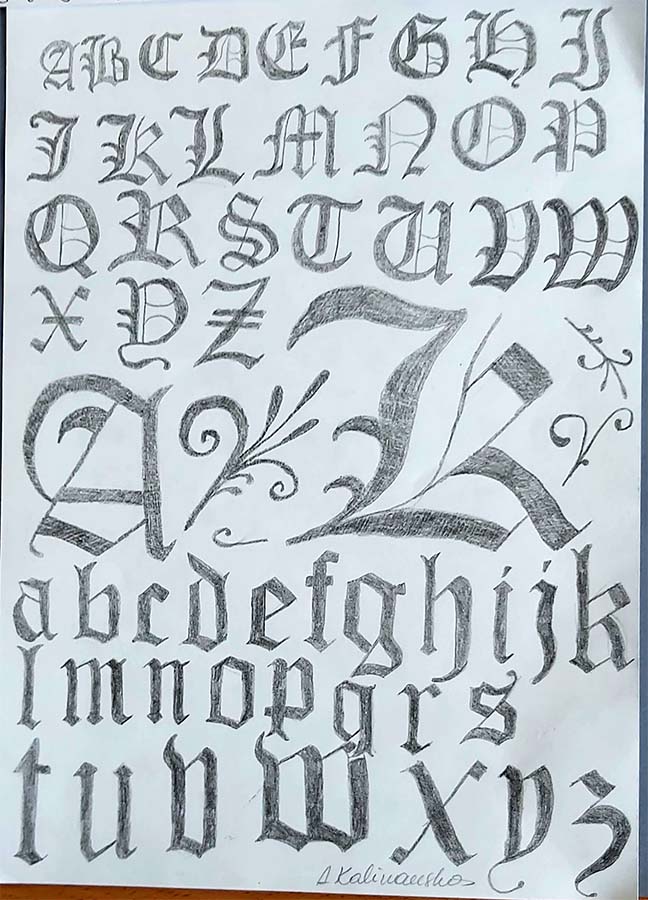 A B C D E F G H I
J K L M N O P
Q R S T U V W
X Y Z
A K
a b c d e f g h i j k
l m n o p q r s
t u v w x y z
A Kalinauskas